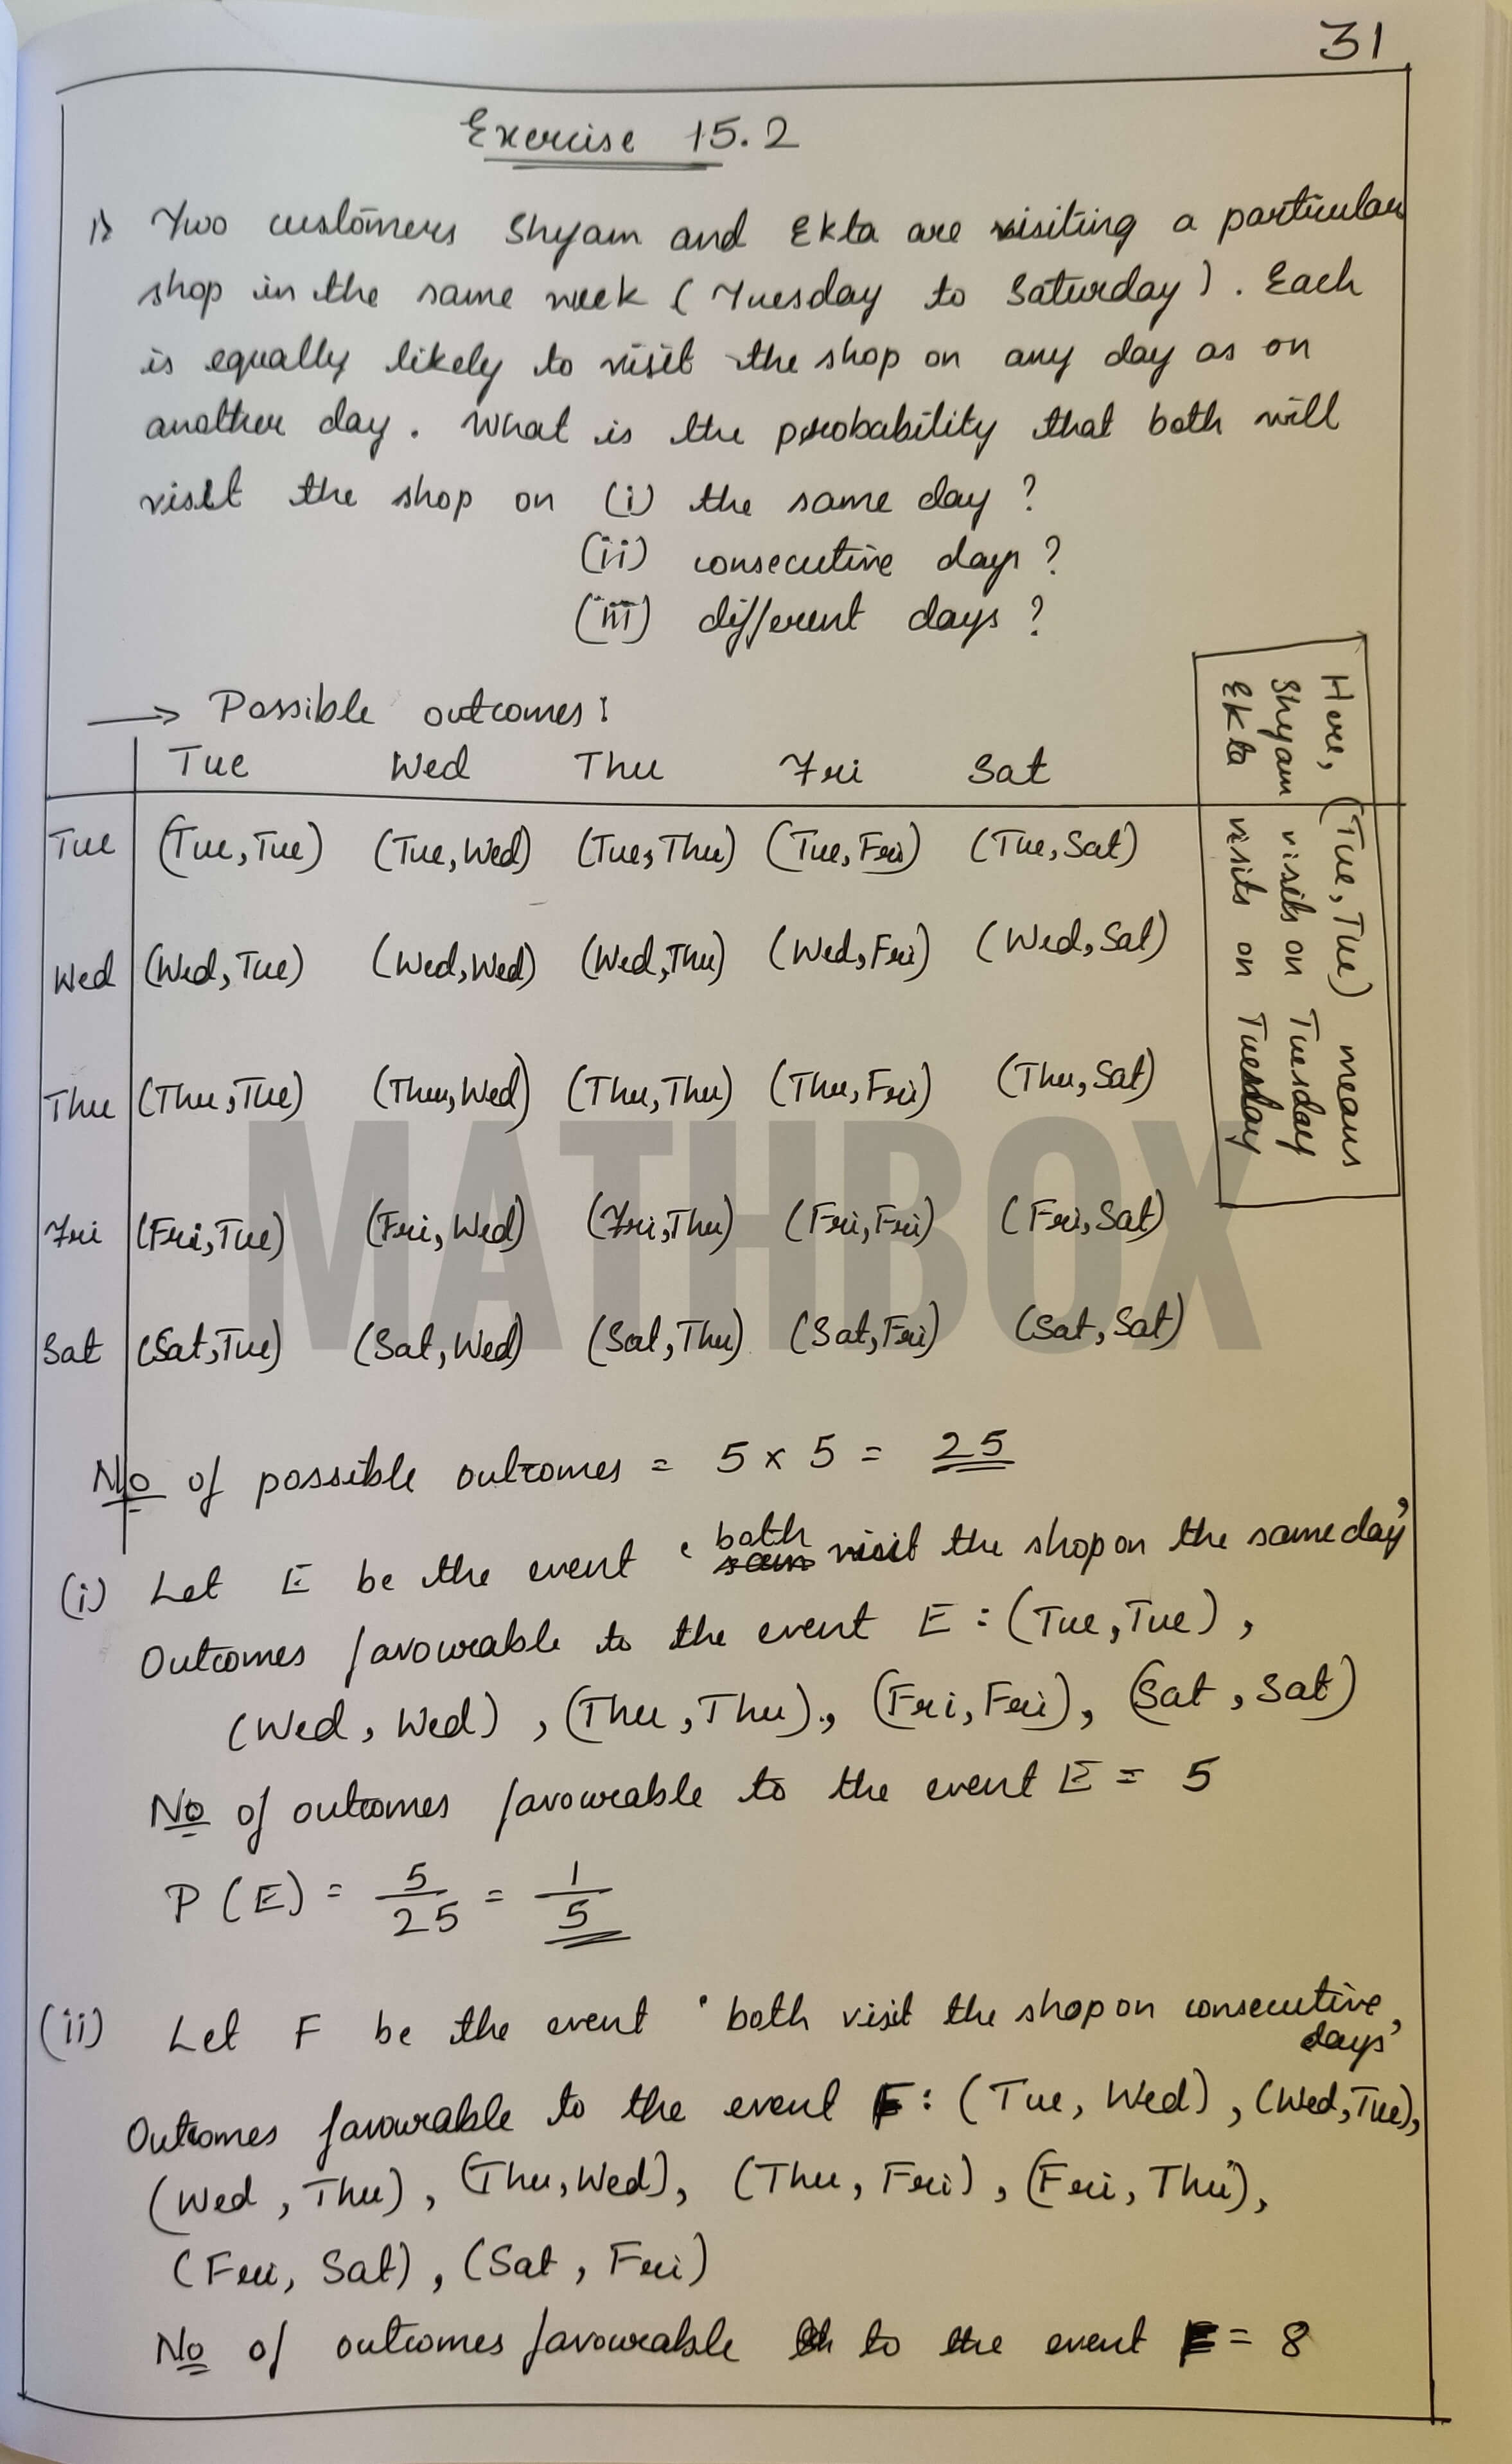 31
Exercise 15.2
1) Two customers Shyam and Ekta are visiting a particular
shop in the same week (Tuesday to Saturday). Each
is equally likely to visit the shop on any day as on
another day. What is the probability that both will
visit the shop on (i) the same day?
(ii) consecutive days?
(iii) different days?
Here, (Tue, Tue) means
Shyam visits on Tuesday
Ekta visits on Tuesday
→ Possible outcomes:
Tue Wed Thu Fri Sat
Tue (Tue, Tue) (Tue, Wed) (Tue, Thu) (Tue, Fri) (Tue, Sat)
Wed (Wed, Tue) (Wed, Wed) (Wed, Thu) (Wed, Fri) (Wed, Sat)
Thu (Thu, Tue) (Thu, Wed) (Thu, Thu) (Thu, Fri) (Thu, Sat)
MATHBOX
Fri (Fri, Tue) (Fri, Wed) (Fri, Thu) (Fri, Fri) (Fri, Sat)
Sat (Sat, Tue) (Sat, Wed) (Sat, Thu) (Sat, Fri) (Sat, Sat)
No of possible outcomes = 5 × 5 = 25
(i) Let E be the event 'both visit the shop on the same day'
Outcomes favourable to the event E : (Tue, Tue),
(Wed, Wed), (Thu, Thu), (Fri, Fri), (Sat, Sat)
No of outcomes favourable to the event E = 5
P(E) = 5/25 = 1/5
(ii) Let F be the event 'both visit the shop on consecutive
days'
Outcomes favourable to the event F : (Tue, Wed), (Wed, Tue),
(Wed, Thu), (Thu, Wed), (Thu, Fri), (Fri, Thu),
(Fri, Sat), (Sat, Fri)
No of outcomes favourable to the event F = 8